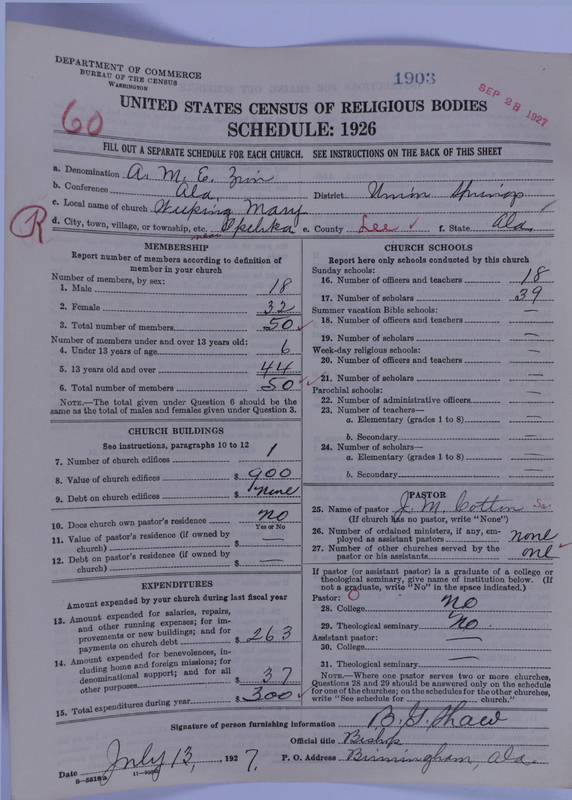 DEPARTMENT OF COMMERCE
BUREAU OF THE CENSUS
WASHINGTON
1903
SEP 28 1927
60
UNITED STATES CENSUS OF RELIGIOUS BODIES
SCHEDULE: 1926
FILL OUT A SEPARATE SCHEDULE FOR EACH CHURCH. SEE INSTRUCTIONS ON THE BACK OF THIS SHEET
a. Denomination A. M. E. Zion
b. Conference Ala District Union Springs
c. Local name of church Weeping Mary
R
d. City, town, village, or township, etc. near Opelika e. County Lee f. State Ala.
MEMBERSHIP
Report number of members according to definition of member in your church
Number of members, by sex:
1. Male 18
2. Female 32
3. Total number of members 50
Number of members under and over 13 years old:
4. Under 13 years of age 6
5. 13 years old and over 44
6. Total number of members 50
NOTE.—The total given under Question 6 should be
same as the total of males and females given under Question 3.
CHURCH BUILDINGS
See instructions, paragraphs 10 to 12
7. Number of church edifices 1
8. Value of church edifices $ 900
9. Debt on church edifices $ none
10. Does church own pastor's residence no
Yes or No
11. Value of pastor's residence (if owned by
church) $ —
12. Debt on pastor's residence (if owned by
church) $ —
EXPENDITURES
Amount expended by your church during last fiscal year
13. Amount expended for salaries, repairs,
and other running expenses; for im-
provements or new buildings; and for
payments on church debt $ 263
14. Amount expended for benevolences, in-
cluding home and foreign missions; for
denominational support; and for all
other purposes $ 37
15. Total expenditures during year $ 300
CHURCH SCHOOLS
Report here only schools conducted by this church
Sunday schools:
16. Number of officers and teachers 18
17. Number of scholars 39
Summer vacation Bible schools:
18. Number of officers and teachers —
19. Number of scholars —
Week-day religious schools:
20. Number of officers and teachers —
21. Number of scholars —
Parochial schools:
22. Number of administrative officers —
23. Number of teachers—
a. Elementary (grades 1 to 8) —
b. Secondary —
24. Number of scholars—
a. Elementary (grades 1 to 8) —
b. Secondary —
PASTOR
25. Name of pastor J. M. Cotton
(If church has no pastor, write "None")
26. Number of ordained ministers, if any, em-
ployed as assistant pastors none
27. Number of other churches served by the
pastor or his assistants one
If pastor (or assistant pastor) is a graduate of a college or
theological seminary, give name of institution below. (If
not a graduate, write "No" in the space indicated.)
Pastor: 0
28. College no
29. Theological seminary no
Assistant pastor:
30. College —
31. Theological seminary —
NOTE.—Where one pastor serves two or more churches,
Questions 28 and 29 should be answered only on the schedule
for one of the churches; on the schedules for the other churches,
write "See schedule for church."
Signature of person furnishing information B. G. Shaw
Official title Bishop
Date July 13, 1927. P. O. Address Birmingham, Ala.